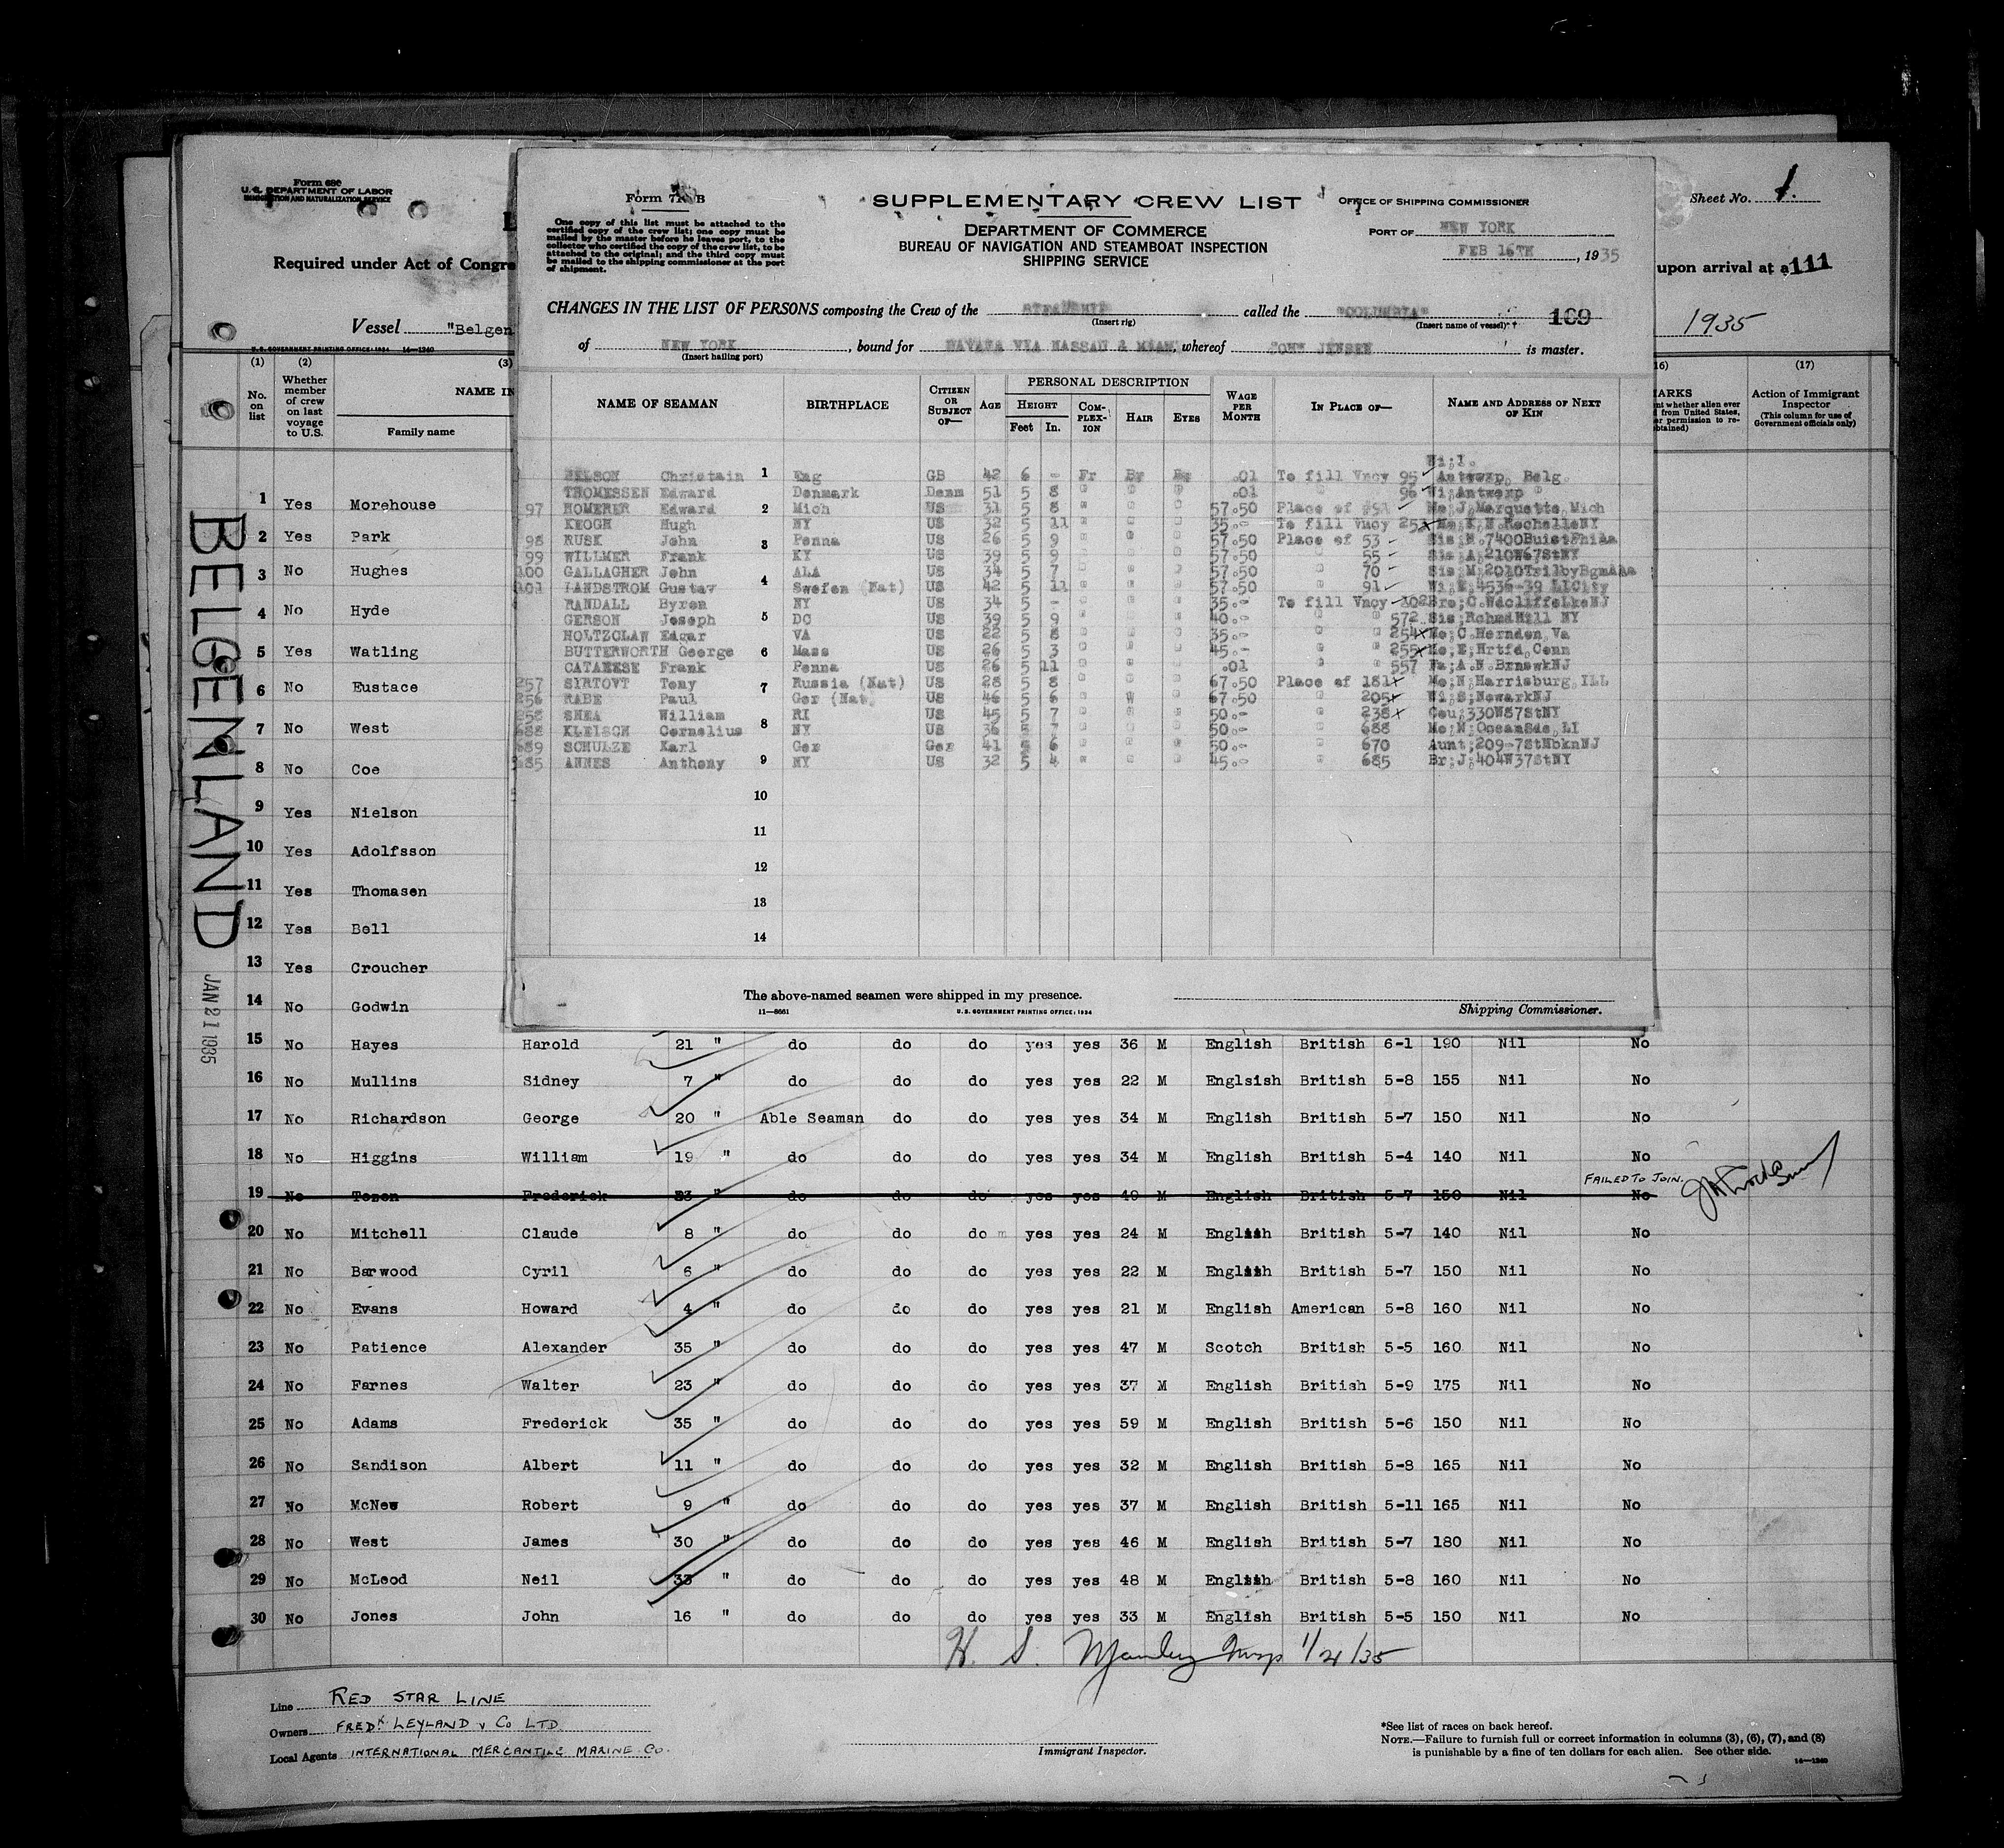 Form 680
U. S. DEPARTMENT OF LABOR
IMMIGRATION AND NATURALIZATION SERVICE
Required under Act of Congre
Vessel "Belgen
U. S. GOVERNMENT PRINTING OFFICE: 1934 14—1240
Sheet No. 1.
upon arrival at a 111
1935
(1) (2) (3)
No. on list
Whether member of crew on last voyage to U.S.
NAME IN
Family name
16) (17)
ARKS
nt whether alien ever
d from United States,
er permission to re-
btained)
Action of Immigrant Inspector
(This column for use of Government officials only)
BELGENLAND
JAN 21 1935
1 Yes Morehouse
2 Yes Park
3 No Hughes
4 No Hyde
5 Yes Watling
6 No Eustace
7 No West
8 No Coe
9 Yes Nielson
10 Yes Adolfsson
11 Yes Thomasen
12 Yes Bell
13 Yes Croucher
14 No Godwin
Form 7 B
One copy of this list must be attached to the
certified copy of the crew list; one copy must be
mailed by the master before he leaves port, to the
collector who certified the copy of the crew list, to be
attached to the original; and the third copy must
be mailed to the shipping commissioner at the port
of shipment.
SUPPLEMENTARY CREW LIST
DEPARTMENT OF COMMERCE
BUREAU OF NAVIGATION AND STEAMBOAT INSPECTION
SHIPPING SERVICE
OFFICE OF SHIPPING COMMISSIONER
PORT OF NEW YORK
FEB 16TH, 1935
CHANGES IN THE LIST OF PERSONS composing the Crew of the STEAMSHIP called the "COLUMBIA" 169
(Insert rig) (Insert name of vessel)
of NEW YORK, bound for HAVANA VIA NASSAU & MIAMI, whereof JOHN JENSEN is master.
(Insert hailing port)
NAME OF SEAMAN BIRTHPLACE CITIZEN OR SUBJECT OF— AGE PERSONAL DESCRIPTION HEIGHT Feet In. COM-PLEX-ION HAIR EYES WAGE PER MONTH IN PLACE OF— NAME AND ADDRESS OF NEXT OF KIN
NELSON Christain 1 Eng GB 42 6 - Fr Br .01 To fill Vncy 95 Wi;I. Antewrp, Belg.
THOMESSEN Edward Denmark Denm 51 5 8 " " " .01 " 96 Wi;Antwerp "
97 HOMERER Edward 2 Mich US 31 5 8 " " " 57.50 Place of Mo;J,Marquette,Mich
KEOGH Hugh NY US 32 5 11 " " " 35.- To fill Vncy 25 Mo;K,N.RochelleNY
98 RUSK John 3 Penna US 26 5 9 " " " 57.50 Place of 53 Sis;M.7400BuistPhila
99 WILLMER Frank KY US 39 5 9 " " " 57.50 " 55 Sis;A,210W67StNY
100 GALLAGHER John ALA US 34 5 7 " " " 57.50 " 70 Sis;M,2010TrilbyBgmAla
101 LANDSTROM Gustav 4 Swefen (Nat) US 42 5 11 " " " 57.50 " 91 Wi;E,4536-39 LICity
RANDALL Byron NY US 34 5 - " " " 35.- To fill Vncy 102 Bro;C.WdcliffeLkeNJ
GERSON Joseph 5 DC US 39 5 9 " " " 40.- " " 572 Sis;RchmdHill NY
HOLTZCLAW Edgar VA US 22 5 8 " " " 35.- " " 254 Mo;C.Hernden,Va
BUTTERWORTH George 6 Mass US 26 5 3 " " " 45.- " " 255 Mo;E;Hrtfd,Conn
CATANESE Frank Penna US 26 5 11 " " " .01 " " 557 Fa;A.N.BrnswkNJ
257 SIRTOVT Tony 7 Russia (Nat) US 28 5 8 " " " 67.50 Place of 181 Mo;N;Harrisburg,ILL
256 RABE Paul Ger (Nat US 46 5 6 " W " 67.50 " 205 Wi;S;NewarkNJ
258 SHEA William RI US 45 5 7 " " " 50.- " 238 Cou;330W87StNY
688 KLEISCH Cornelius 8 NY US 36 5 7 " " " 50.- " 688 Mo;M;OceanSde,LI
689 SCHULZE Karl Ger Ger 41 5 6 " " " 50.- " 670 Aunt;209-7StHbknNJ
685 ANNES Anthony 9 NY US 32 5 4 " " " 45.- " 685 Br;J;404W37StNY
10
11
12
13
14
The above-named seamen were shipped in my presence.
11—8661 U. S. GOVERNMENT PRINTING OFFICE: 1934 Shipping Commissioner.
15 No Hayes Harold 21 " do do do yes yes 36 M English British 6-1 190 Nil No
16 No Mullins Sidney 7 " do do do yes yes 22 M Englsish British 5-8 155 Nil No
17 No Richardson George 20 " Able Seaman do do yes yes 34 M English British 5-7 150 Nil No
18 No Higgins William 19 " do do do yes yes 34 M English British 5-4 140 Nil No
FAILED TO JOIN.
19 No Tozon Frederick 33 " do do do yes yes 49 M English British 5-7 150 Nil No
20 No Mitchell Claude 8 " do do do yes yes 24 M English British 5-7 140 Nil No
21 No Barwood Cyril 6 " do do do yes yes 22 M English British 5-7 150 Nil No
22 No Evans Howard 4 " do do do yes yes 21 M English American 5-8 160 Nil No
23 No Patience Alexander 35 " do do do yes yes 47 M Scotch British 5-5 160 Nil No
24 No Farnes Walter 23 " do do do yes yes 37 M English British 5-9 175 Nil No
25 No Adams Frederick 35 " do do do yes yes 59 M English British 5-6 150 Nil No
26 No Sandison Albert 11 " do do do yes yes 32 M English British 5-8 165 Nil No
27 No McNew Robert 9 " do do do yes yes 37 M English British 5-11 165 Nil No
28 No West James 30 " do do do yes yes 46 M English British 5-7 180 Nil No
29 No McLeod Neil 33 " do do do yes yes 48 M English British 5-8 160 Nil No
30 No Jones John 16 " do do do yes yes 33 M English British 5-5 150 Nil No
H. S. Manley Insp 1/21/35
Line RED STAR LINE
Owners FREDK LEYLAND & CO LTD
Local Agents INTERNATIONAL MERCANTILE MARINE CO.
Immigrant Inspector.
*See list of races on back hereof.
NOTE.—Failure to furnish full or correct information in columns (3), (6), (7), and (8)
is punishable by a fine of ten dollars for each alien. See other side.
14—1240